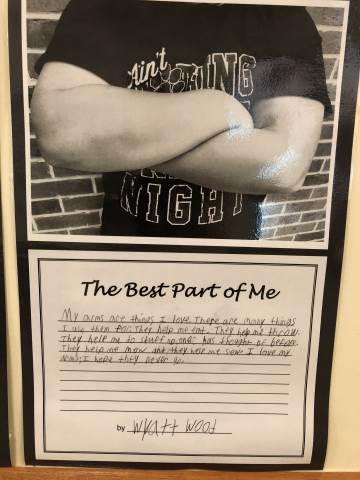 Ain't
NIGHT
The Best Part of Me
My arms are things I love. There are many things
I use them for. They help me eat. They help me throw.
They help me to stuff no one has thought of before.
They help me mow and they help me I love my
arms; I hope they never go.
by Wyatt Wood